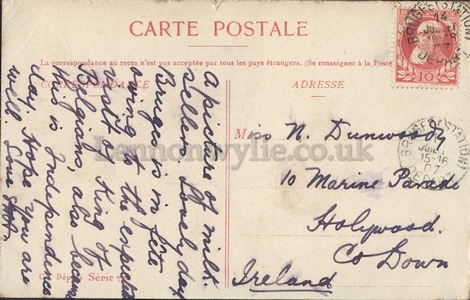 CARTE POSTALE
La correspondance au recto n'est pas acceptée par tous les pays étrangers. (Se renseigner à la Poste
CORRESPONDANCE
ADRESSE
A picture of milk
sellers. Lovely day
Bruges is in fête
owing to the expected
visit of King of
Belgians also because
this is Independence
day. Hope you are
well Love
Miss N. Dunwoody
10 Marine Parade
Holywood.
Co Down
Ireland
10
BRUGES (STATION)
JUIL
15-16
07
Série
lennonwylie.co.uk